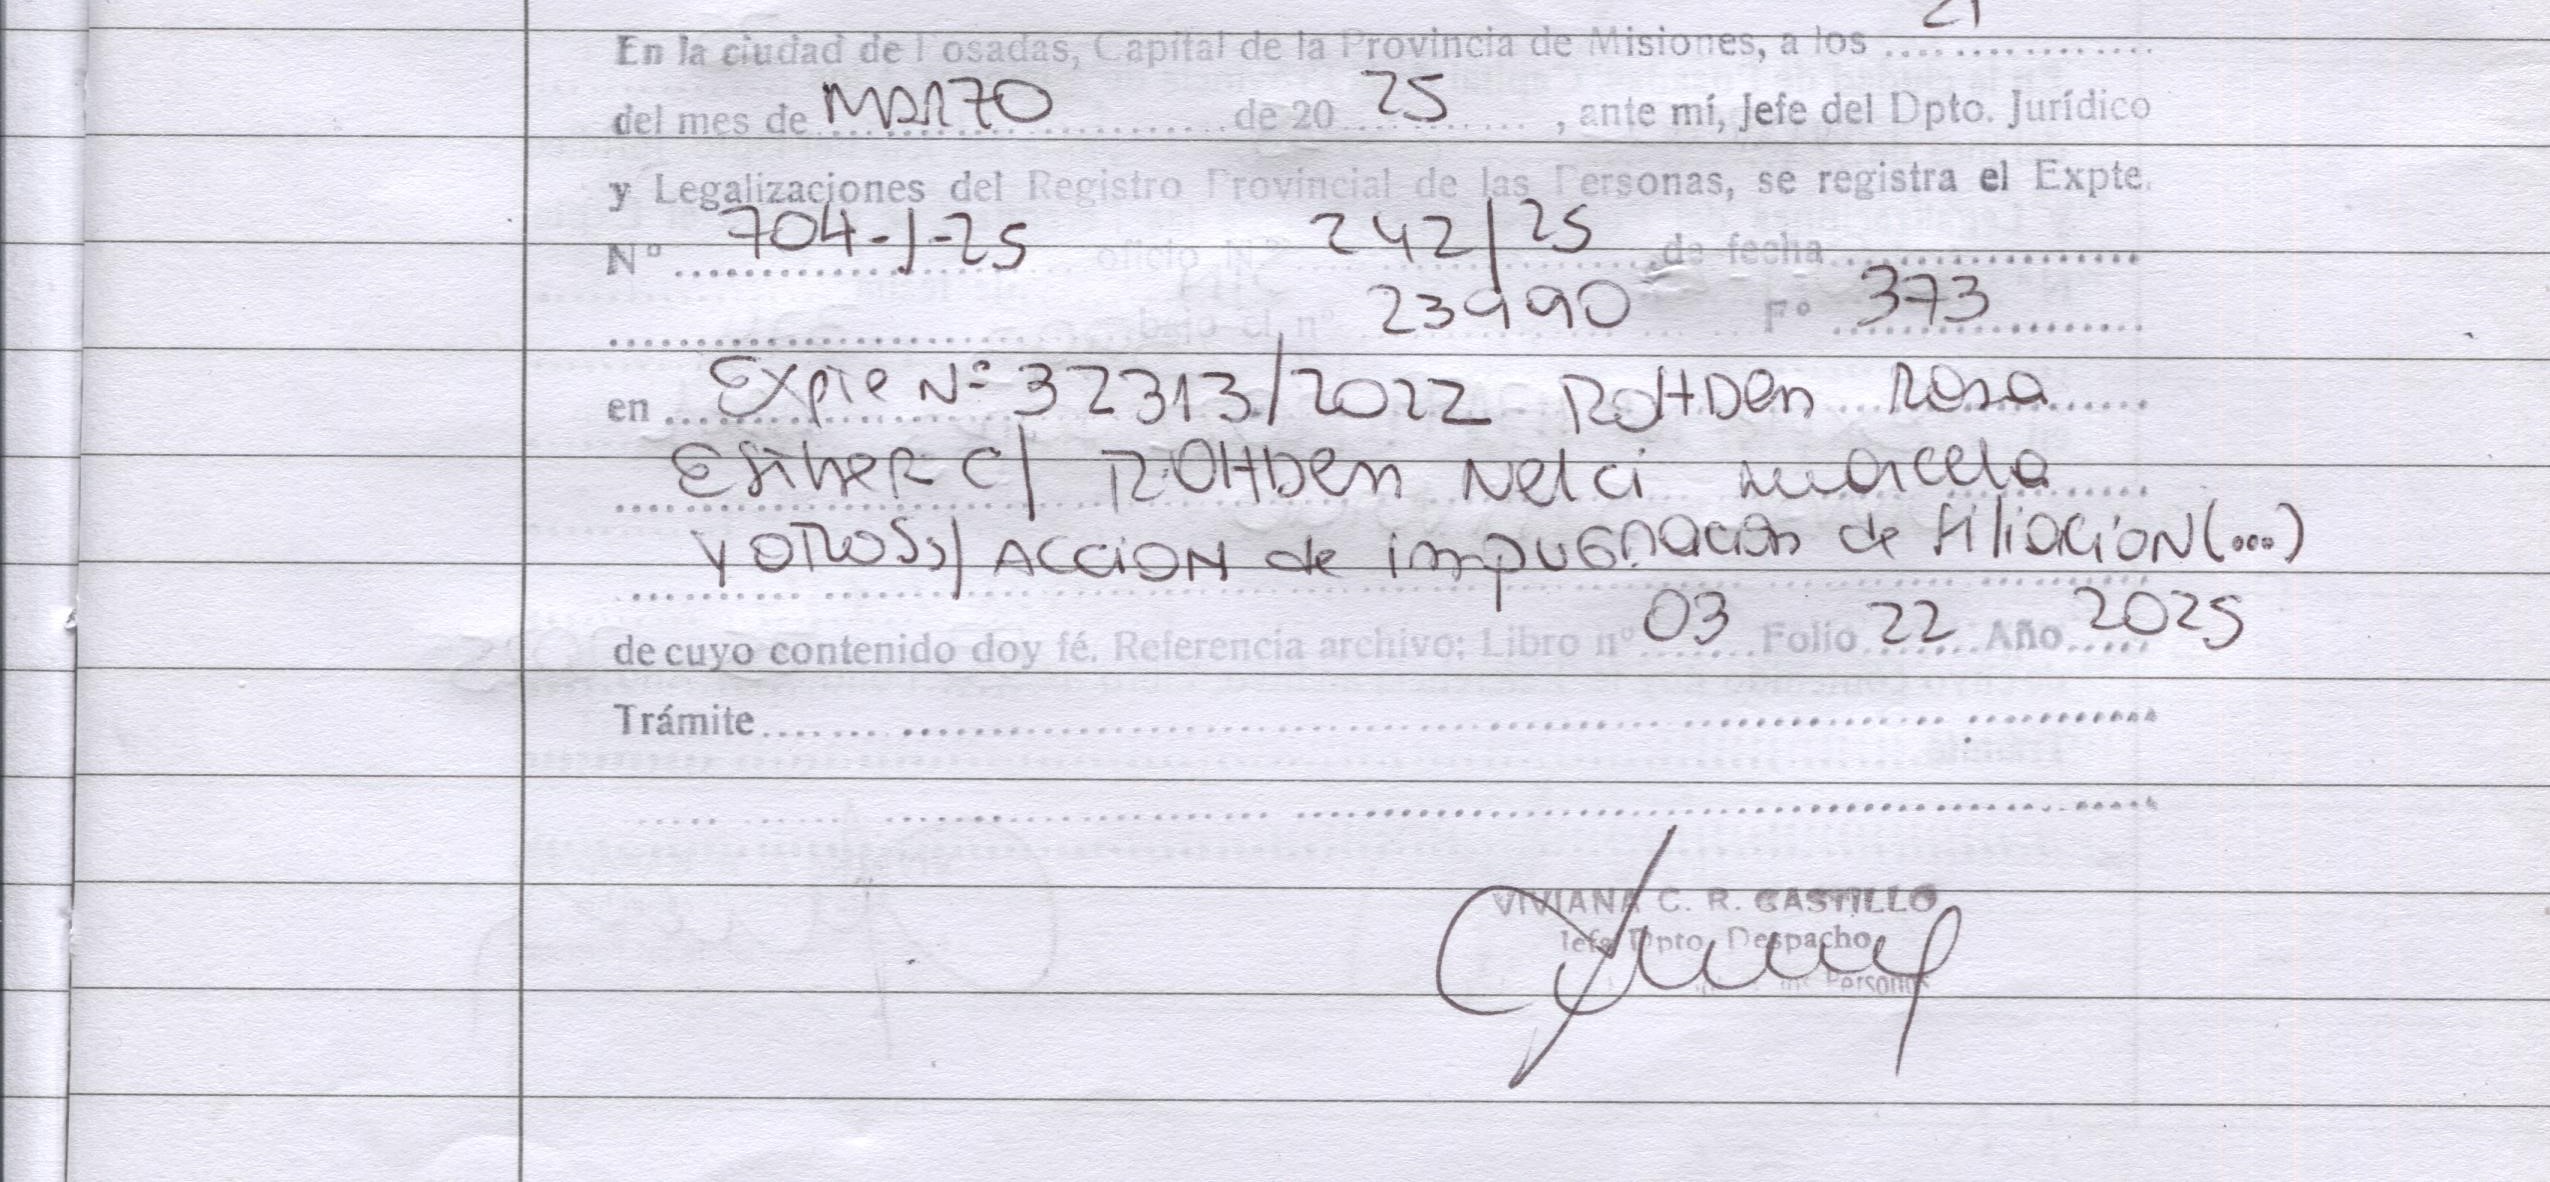 En la ciudad de Posadas, Capital de la Provincia de Misiones, a los 21
del mes de MARZO de 20 25, ante mí, Jefe del Dpto. Jurídico
y Legalizaciones del Registro Provincial de las Personas, se registra el Expte.
Nº 704-J-25 oficio Nº 242/25 de fecha
bajo el nº 23990 Fº 373
en Expte Nº 32313/2022 ROHDen Rosa
EstheR C/ ROHDen Nelci marcela
Y OTROS S/ ACCION de impugnacion de filiacioN (...)
de cuyo contenido doy fé. Referencia archivo: Libro nº 03 Folio 22 Año 2025
Trámite
VIVIANA C. R. CASTILLO
Jefa Dpto. Despacho
Personas